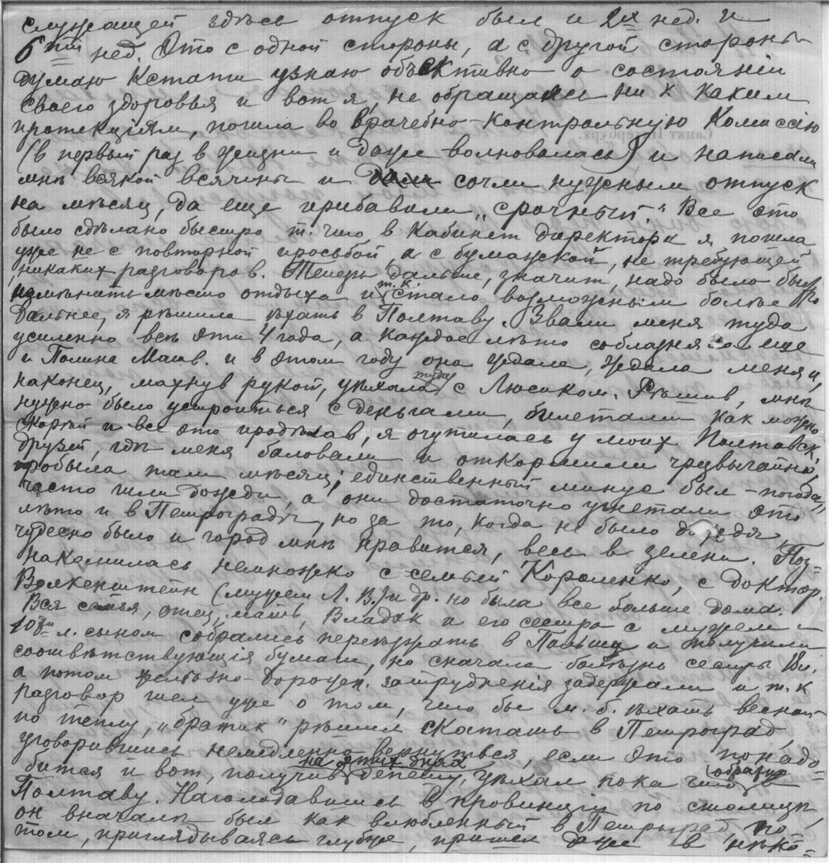 служащей здесь отпуск был и 2х нед. и
6ти нед. Это с одной стороны, а с другой стороны
думаю кстати узнаю объективно о состоянiи
своего здоровья и вот я, не обращаясь ни к каким
протекцiям, пошла во врачебно-контрольную Комиссiю
(в первый раз в жизни и даже волновалась) и написали
мнѣ всякой всячины и сочли нужным отпуск
на мѣсяц, да еще прибавили „срочный“. Все это
было сдѣлано быстро т. что в Кабинет директора я пошла
уже не с повторной просьбой, а с бумажкой, не требующей
никаких разговоров. Теперь дальше, значит, надо было было
мѣсто отдыха и т. к. стало возможным болѣе
дальнее, я рѣшила ѣхать в Полтаву. Звали меня туда
усиленно всѣ эти 4 года, а каждое лѣто соблазняла еще
и Полина Матв. и в этом году она ждала, ждала меня и,
наконец, махнув рукой, уѣхала туда с Люсиком. Рѣшив, мнѣ
нужно было устроиться с деньгами, билетами как можно
скорѣй и все это продѣлав, я очутилась у моих Полтавск.
друзей, гдѣ меня баловали и откормили чрезвычайно,
пробыла там мѣсяц; единственный минус был — погода,
часто шли дожди, а они достаточно угнетали это
лѣто и в Петрограде, но за то, когда не было дождя,
чудесно было и город мнѣ нравится, весь в зелени. Поз-
накомилась немножко с семьей Короленко, с доктор.
Волкенштейн (мужем Л. В.) и др. но была все больше дома.
Вся семья, отец, мать, Владек и его сестра с мужем и
10ти л. сыном собрались переѣзжать в Польшу и получили
соотвѣтствующiя бумаги, но сначала болѣзнь сестры Вл.
а потом желѣзно-дорожн. затрудненiя задержали и т. к
разговор шел уже о том, что бы м. б. ѣхать весной
по теплу, „братик“ рѣшил скатать в Петроград,
уговорившись немедленно вернуться, если это понадо-
бится и вот, получив на этих днях депешу, уѣхал пока что обратно в
Полтаву. Наголодавшись в провинцiи по столицѣ,
он вначалѣ был как влюбленный в Петроград, по
том, приглядываясь глубже, пришел даже в нѣко-